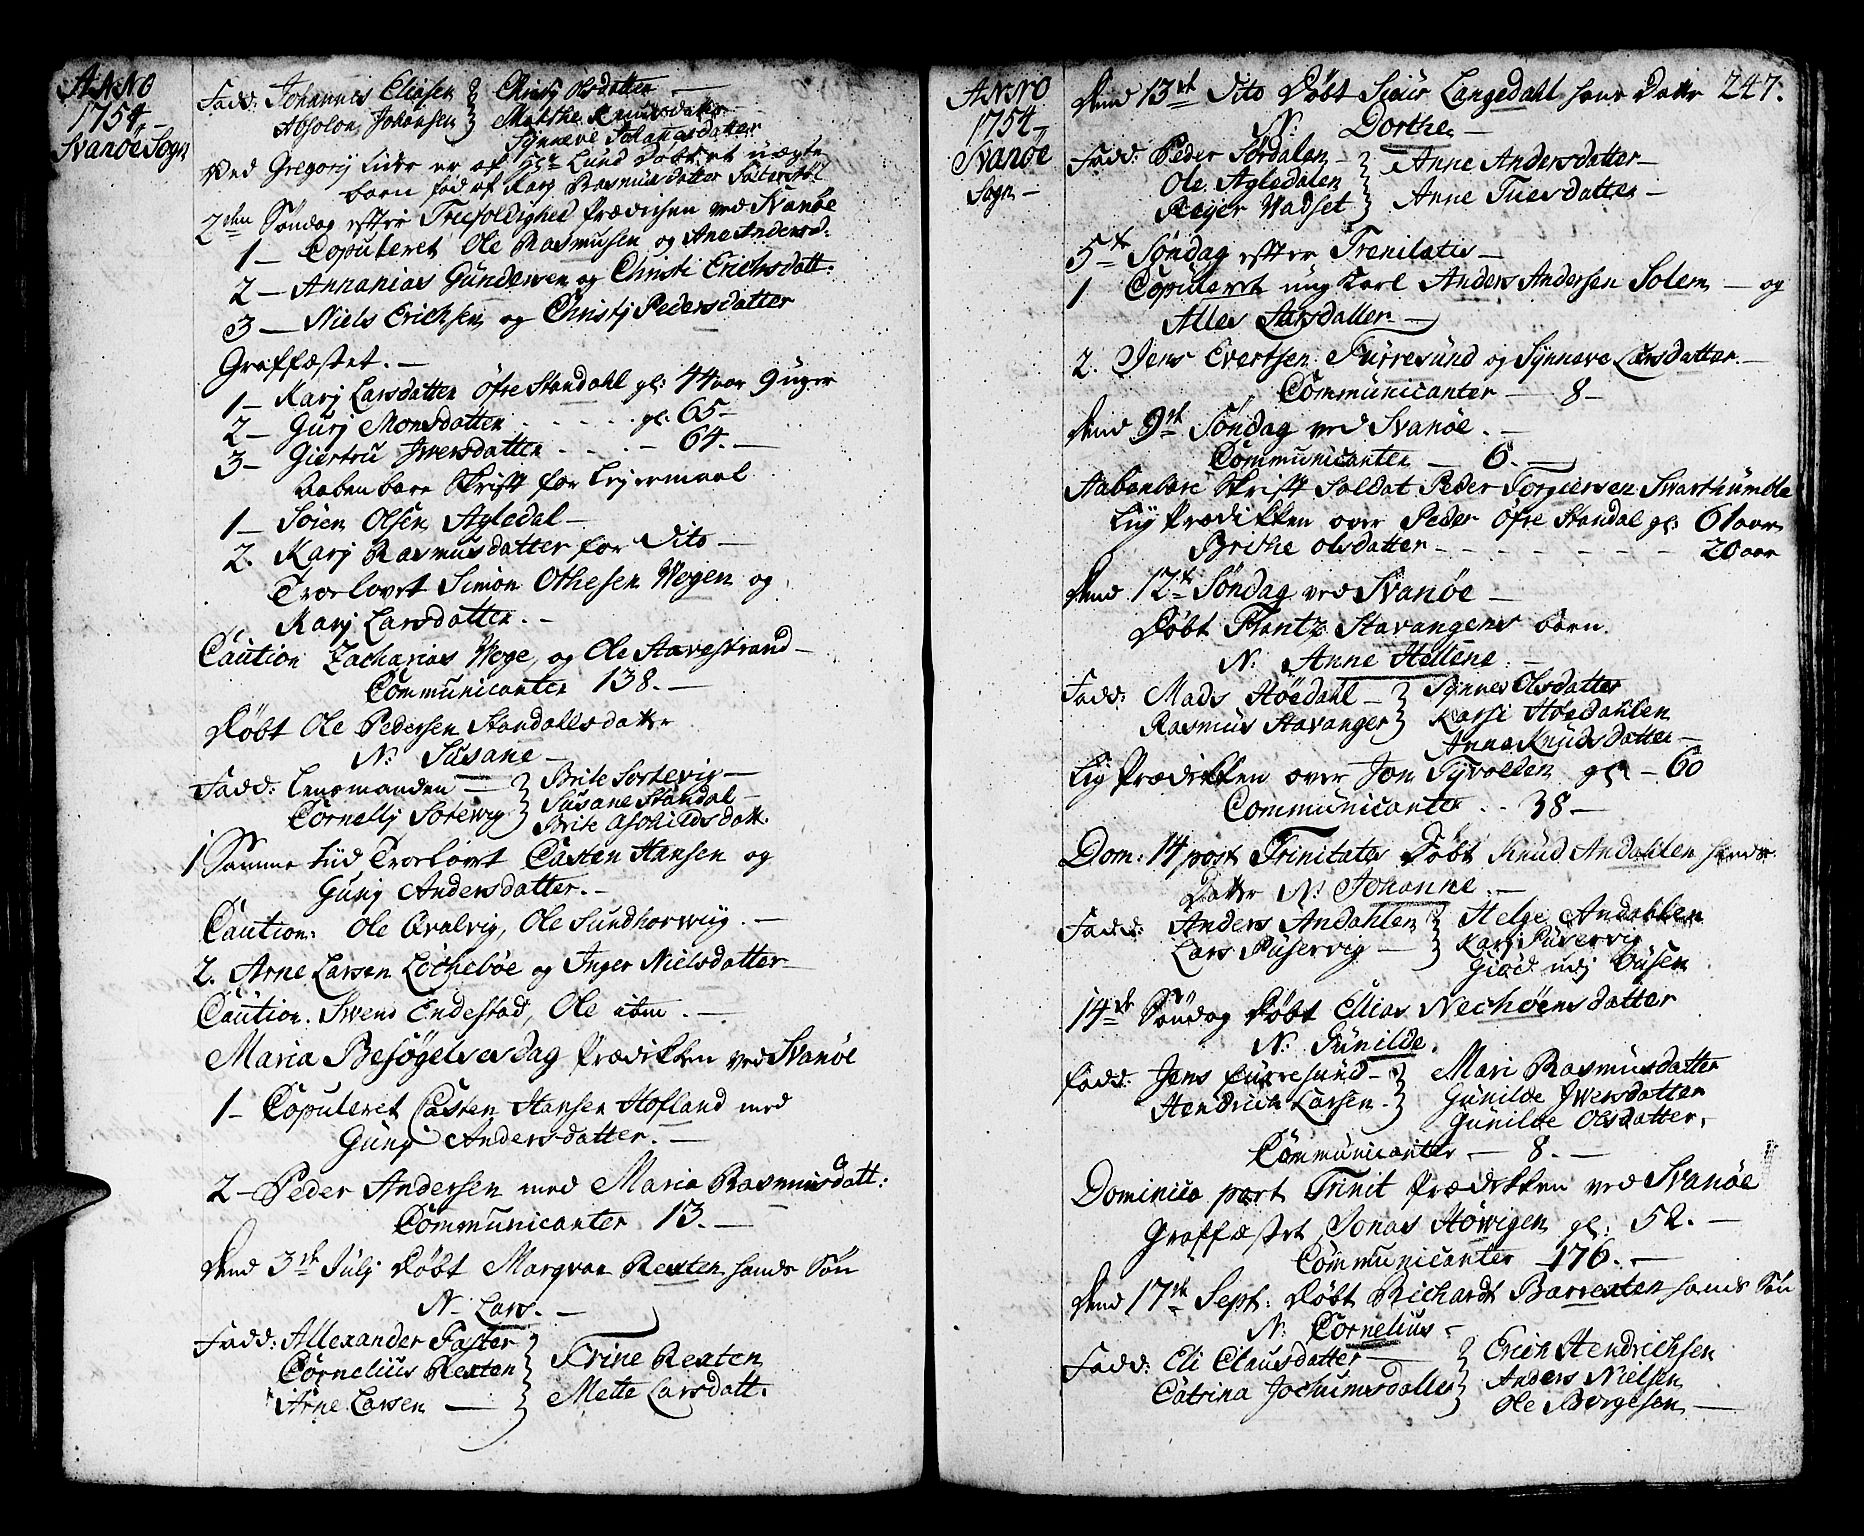 ANNO
1754
Svanöe Sogn
Fadd: Johannes Eliasen } Christj Olsdatter —
Absolon Johansen } Marthe Knudsdatter
Synneve Johanesdatter
Ved Gregorij Fuhr er af Hr Lund döbt et uægte
barn fød af Karj Rasmusdatter
2den Søndag efter Trefoldighed Prædichen ved Svanöe
1 — Copuleret Ole Rasmusen og Ane Andersd.
2 — Annanias Gundersen og Christi Erichsdatt:
3 — Niels Erichsen og Christj Pedersdatter
Graffæstet. —
1 — Karj Larsdatter Öfre Standahl gl: 44 aar 9 uger
2 — Gurj Monsdatter - - - - - gl: 65 —
3 — Giertru Iwersdatter - - - - 64. —
Aabenbare Skrift for Leiermaal
1 — Soien Olsen Agledal —
2. Karj Rasmusdatter for Dito —
Troelovet Simon Othesen Wogen og
Karj Larsdatter. —
Caution Zacharias Woge, og Ole Stavestrand —
Communicanter 138. —
Döbt Ole Pedersen Standallsdatter
N: Susane —
Fadd: Lensmanden — } Brite Sortevig —
Cornellj Sortewig } Susane Standal —
Brite Aschildsdatt.
1 Samme tiid Troelovet Casten Hansen og
Gunj Andersdatter. —
Caution: Ole Qvalvig, Ole Sundhorwiig. —
2. Arne Larsen Löcheböe og Inger Nielsdatter —
Caution. Swend Endestad, Ole item. —
Maria Besögelses dag Prædikken ved Svanöe
1 — Copuleret Casten Hansen Hofland med
Gunj Andersdatter. —
2 — Peder Andersen med Maria Rasmusdatt:
Communicanter 13. —
Dend 3de Julj Döbt Margvar Rexten hands Sön
N — Lars. —
Fadd: Allexander Faster }
Cornelius Rexten } Trine Rexten
Arne Larsen — } Mette Larsdatt.
ANNO
1754
Svanöe
Sogn —
Dend 13de Dito Döbt Siver Langedahl hans Datter 247.
N: Dorthe —
Fadd: Peder Sördalen — } Anne Andersdatter —
Ole Agledalen } Anne Tuesdatter —
Reyer Vadset }
5te Söndag efter Trenitatis —
1 Copuleret ung Karl Anders Andersen Solem — og
Alles Larsdatter —
2. Jens Evertsen Furresund og Synneve Larsdatter —
Communicanter — 8 —
Dend 9de Söndag ved Svanöe. —
Communicanter — 6. —
Aabenbare Skrift Soldat Peder Torgiersen Svarthumble
Liig Prædikken over Peder Öfre Standal gl: 61 aar
Brithe Olsdatter - - - - - - - - 20 aar
Dend 12te Söndag ved Svanöe —
Döbt Frantz Stavangers barn.
N: Anne Hellene. —
Fadd: Mads Höedahl — } Synnev Olsdatter
Rasmus Stavanger } Karsi Höedahlen
Anna Knudsdatter —
Liig Prædikken over Jon Tyvolden gl — 60
Communicanter - - 38 —
Dom: 14 post Trinitates Döbt Knud Andahlen hands
Datter N: Johanne. —
Fadd: Anders Andahlen } Helge Andahlen
Lars Huservig — } Karj Huservig
Giöd Büsen
14de Söndag Döbt Ellias Nechöens datter
N: Gunilde.
Fadd: Jens Furresund — } Mari Rasmusdatter
Hendrich Larsen. } Gunilde Iwersdatter
Gunilde Olsdatter.
Communicanter — 8. —
Dominica post Trinit Prædikken ved Svanöe
Graffæstet Jonas Höwigen gl: 52. —
Communicanter — 176. —
Dend 17de Sept: Döbt Richardt Barrexten hans Sön
N: Cornelius —
Fadd: Eli Clausdatter — } Erich Hendrichsen
Catrina Jochumsdatter } Anders Nielsen
Ole Borgesen —